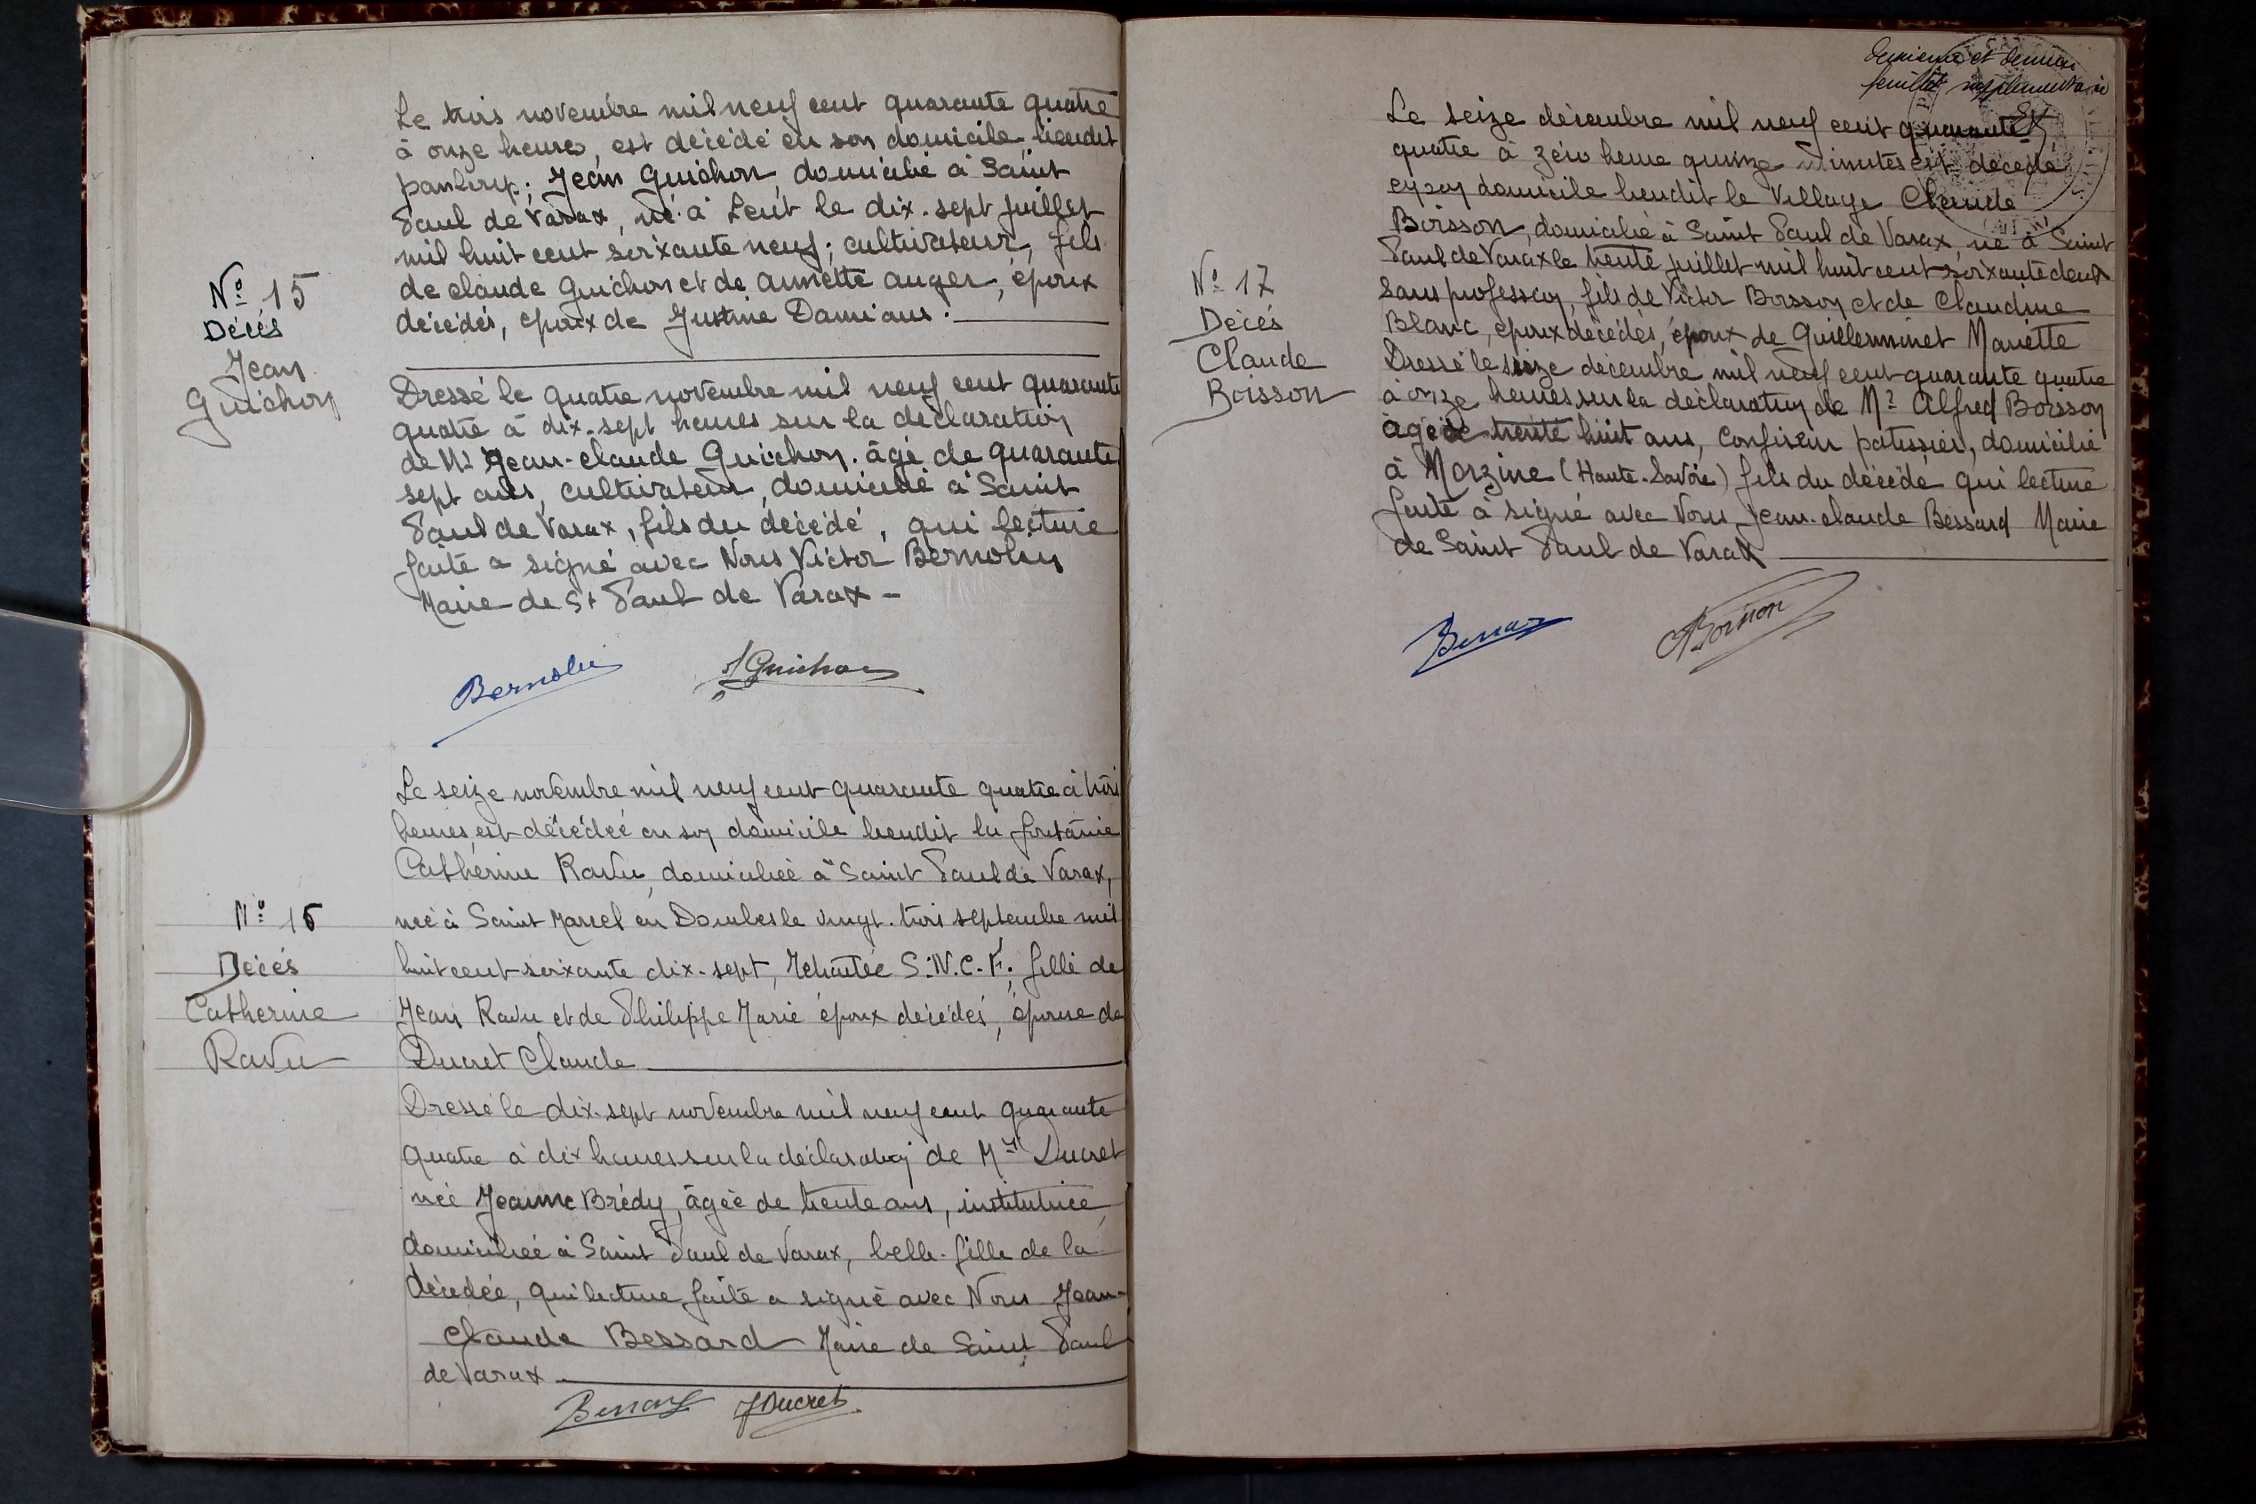 Le trois novembre mil neuf cent quarante quatre
à onze heures, est décédé en son domicile lieudit
Jean Guichon, domicilié à Saint
Paul de Varax, né à Lent le dix-sept juillet
mil huit cent soixante neuf; cultivateur, fils
de claude Guichon et de annette auger, époux
décédés, époux de Justine Damians.
N° 15
Décès
Jean
Guichon
Dressé le quatre novembre mil neuf cent quarante
quatre à dix-sept heures sur la déclaration
de Mr Jean-claude Guichon. âgé de quarante
sept ans, cultivateur, domicilié à Saint
Paul de Varax, fils du décédé, qui lecture
faite a signé avec Nous Victor Bernolin
Maire de St Paul de Varax -
Bernolin JGuichon
Le seize novembre mil neuf cent quarante quatre à trois
heures est décédée en son domicile lieudit la
Catherine Ravu, domiciliée à Saint Paul de Varax,
N° 16
née à Saint Marcel en Dombes le vingt-trois septembre mil
Décès
huit cent soixante dix-sept, Retraitée S.N.C.F; fille de
Catherine
Jean Ravu et de Philippe Marie époux décédés, épouse de
Ravu
Ducret Claude
Dressé le dix-sept novembre mil neuf cent quarante
quatre à dix heures sur la déclaration de Me Ducret
née Jeanne Brédy, âgée de trente ans, institutrice,
domiciliée à Saint Paul de Varax, belle-fille de la
décédée, qui lecture faite a signé avec Nous Jean-
Claude Bessard Maire de Saint Paul
de Varax
Bessard JDucret
deuxième et dernier
feuillet supplémentaire
Le seize décembre mil neuf cent quarante
quatre à zéro heure quinze minutes est décédé
en son domicile lieudit le Village Claude
Boisson, domicilié à Saint Paul de Varax né à Saint
Paul de Varax le trente juillet mil huit cent soixante deux
sans profession, fils de Victor Boisson et de Claudine
Blanc, époux décédés, époux de Guillerminet Mariette
N° 17
Décès
Claude
Boisson
Dressé le seize décembre mil neuf cent quarante quatre
à onze heures sur la déclaration de Mr Alfred Boisson
âgé de trente huit ans, confiseur patissier, domicilié
à Morzine (Haute-Savoie) fils du décédé qui lecture
faite à signé avec Nous Jean-claude Bessard Maire
de Saint Paul de Varax
Bessard ABoisson